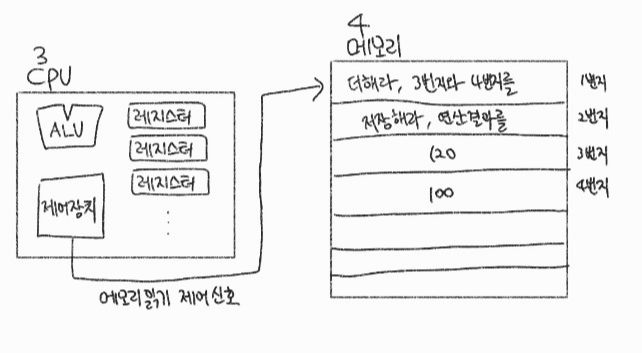 3
CPU
ALU
레지스터
레지스터
레지스터
제어장치
메모리읽기 제어신호
4
메모리
더해라, 3번지와 4번지를
1번지
저장해라, 연산결과를
2번지
120
3번지
100
4번지